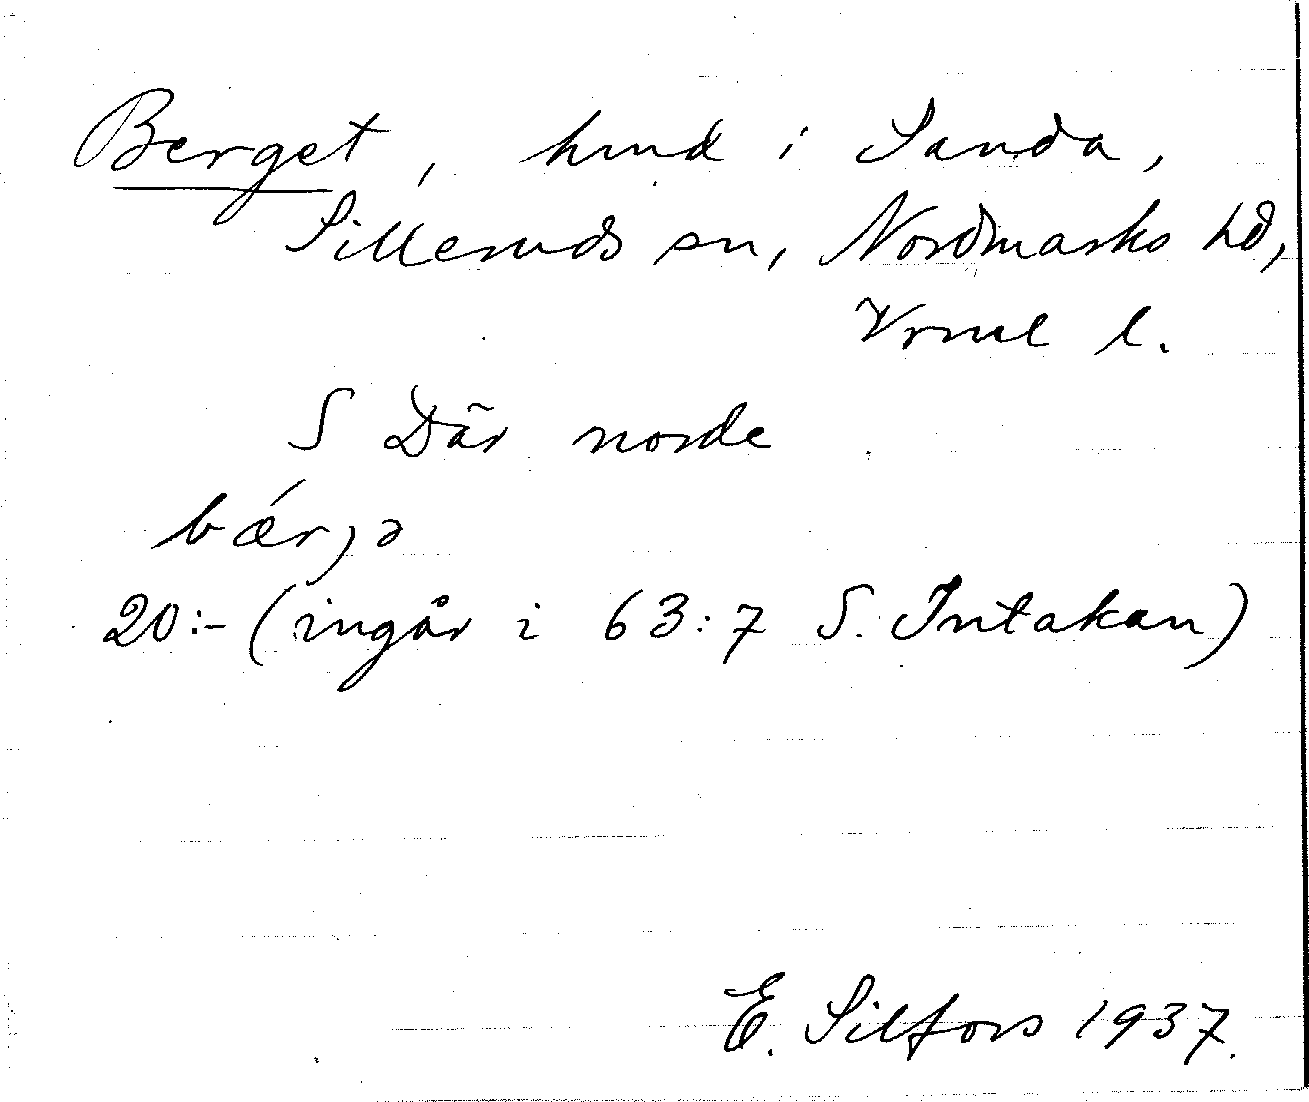 Berget, hmd i Sanda,
Silleruds sn, Nordmarks hd,
Vrml l.
S Där norde
bǽrjə
20:- (ingår i 63:7 S. Intakan)
E. Silfors 1937.